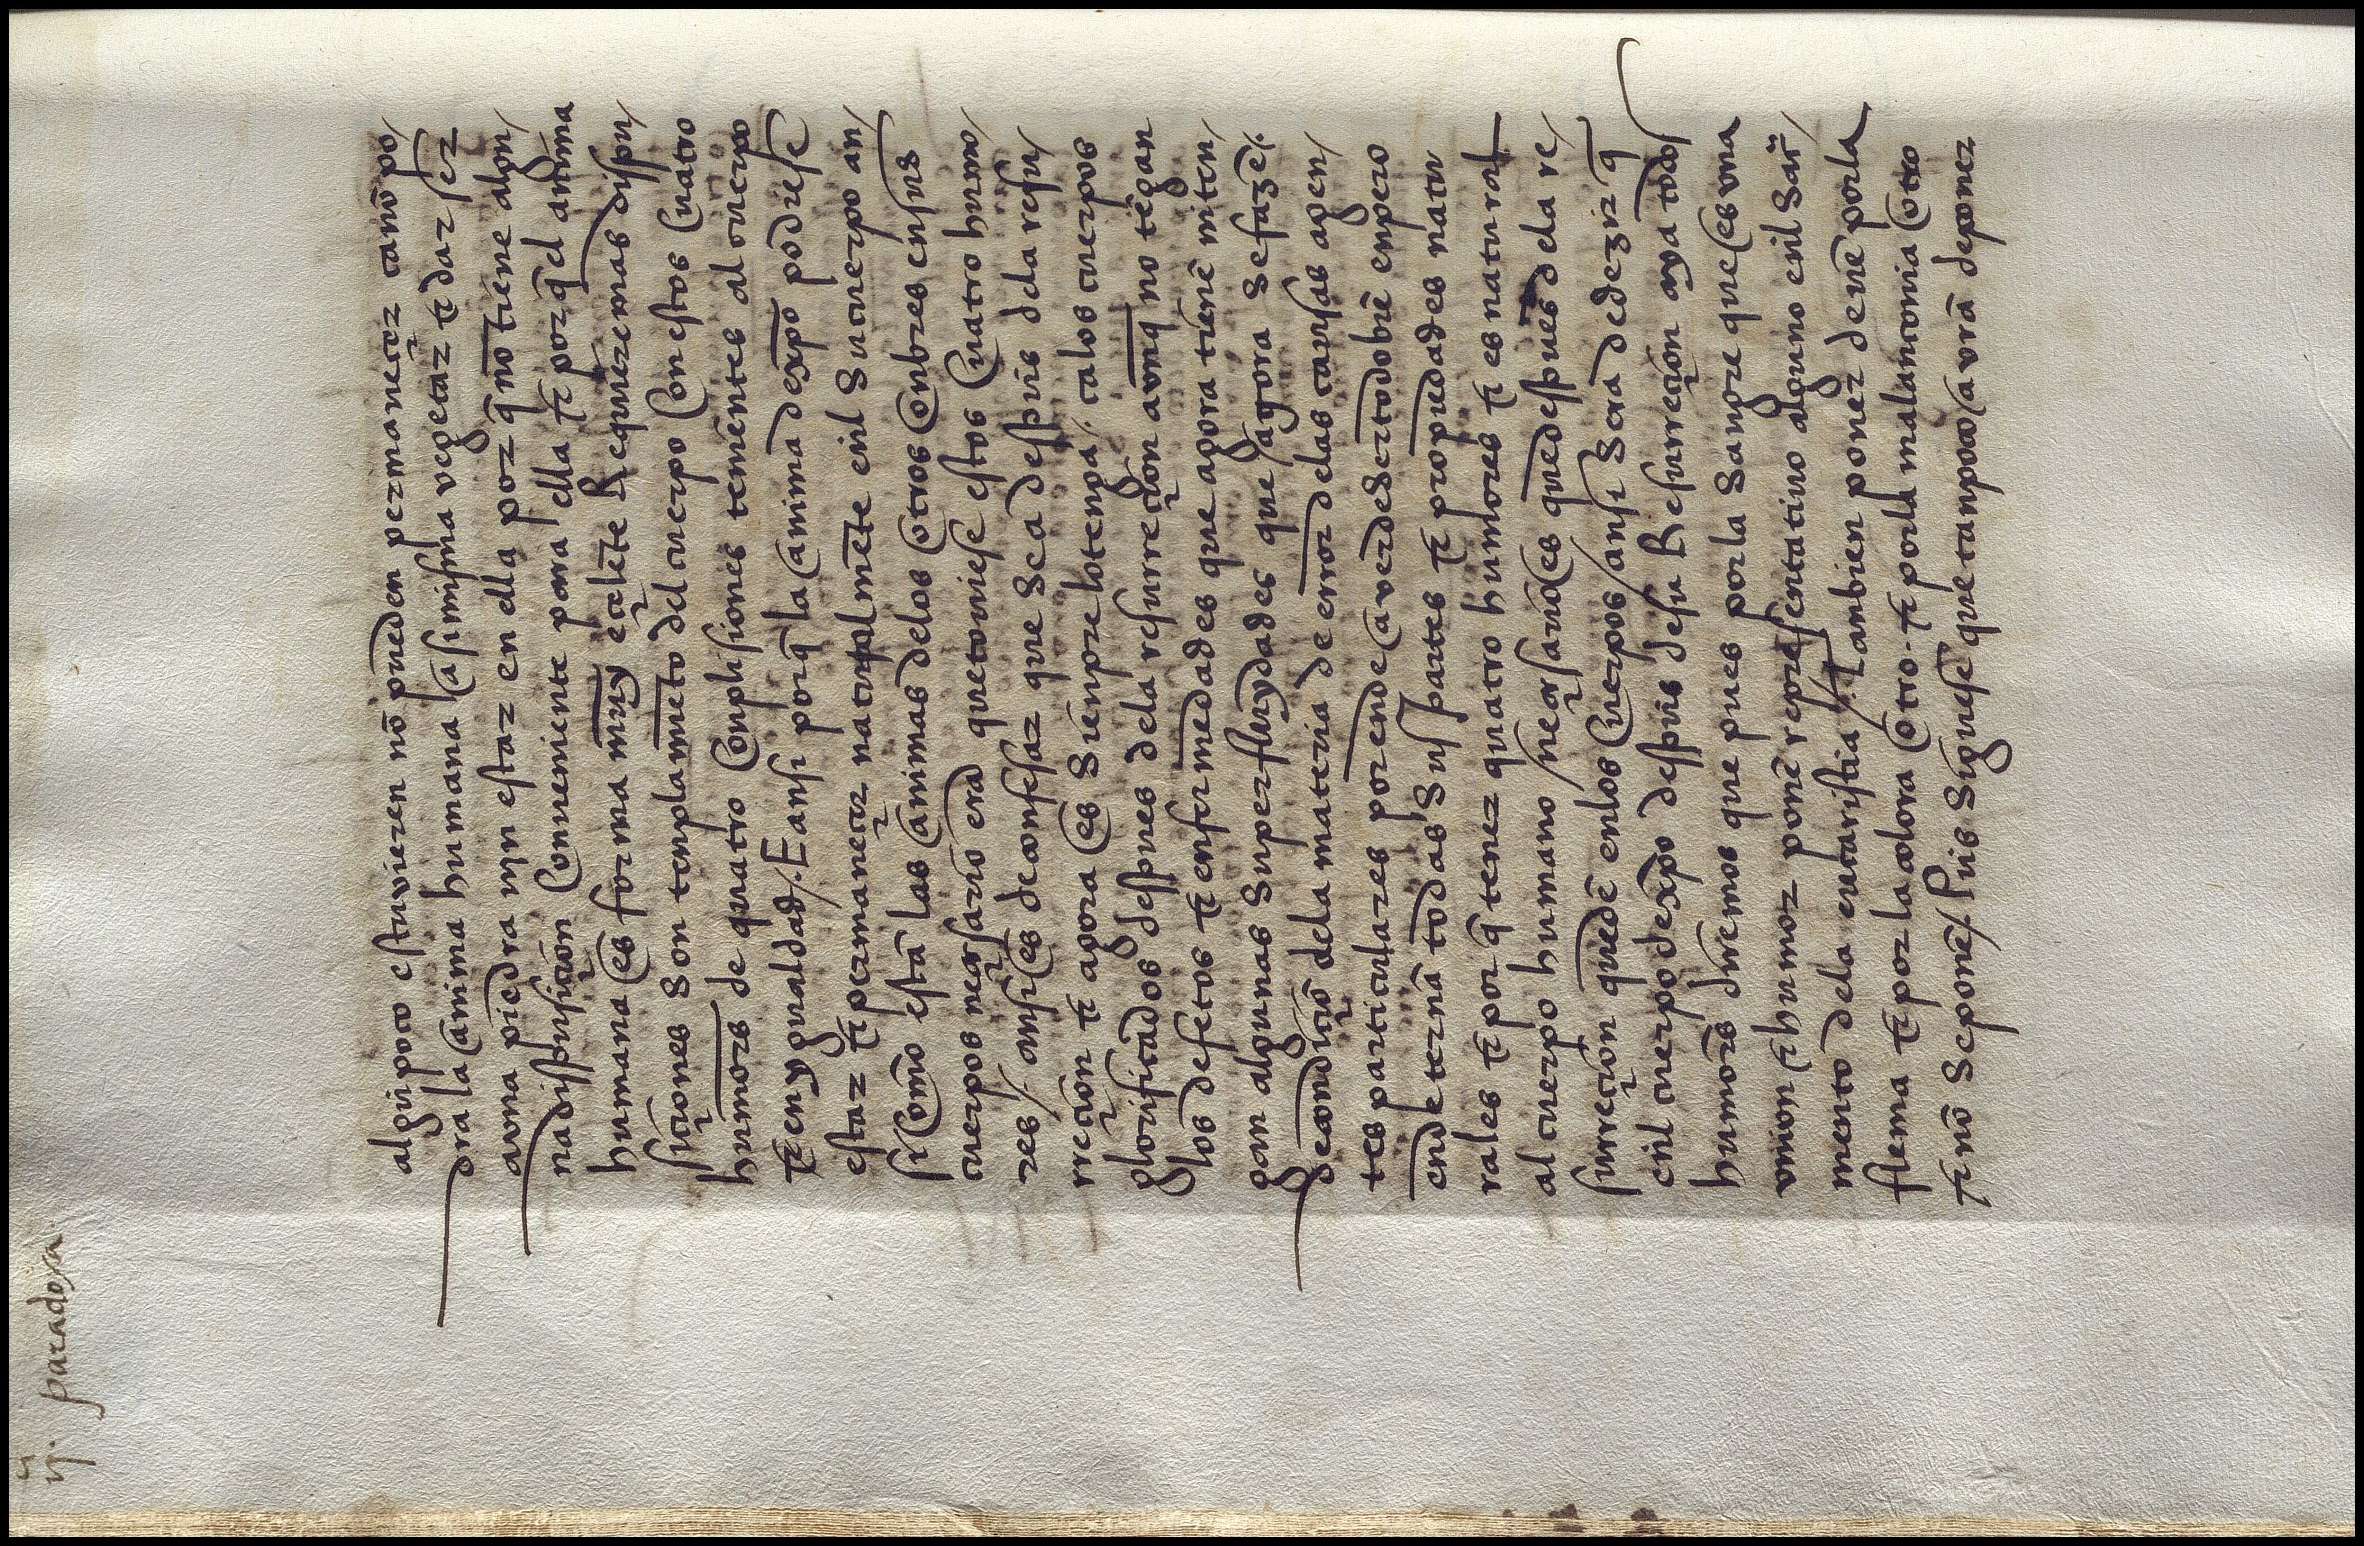 ij. paradoxa
algũ poco estuvieren nõ pueden permaneçer tãnõ po/
dra la anima humana asimisma vegetar τ dar ser
avna piedra njn estar en ella por q̃ nõ tiene algu/
na dispusiçion conueniente para ella τ por q̃ el anima
humana es forma muy eçelẽte Requeremas dispu/
siçiones son tenplamẽto del cuerpo con estos cuatro
humores de quatro conplisiones tenientes al cuerpo
τ en ygualdad/. E ansi porq̃ la anima dexp̃o podiese
estar τ permaneçer naturalmẽte enl su cuerpo an/
si como estã las animas delos otros onbres ensus
cuerpos neçesario era quetouiese estos cuatro humo/
res/. ansi es deconfesar que sea despues dela resu/
rreçion τ agora es sienpre lotenga/. calos cuerpos
glorificados despues dela resurreçion avnq̃ no tẽgan
los defetos τ enfermedades que agora tienẽ nitẽn/
gan algunas superfluydades que agora se fazẽ/.
decondiçiõ dela materia de error delas causas agen/
tes particulares porende averdesertodobiẽ enpero
ende ternã todas sus partes τ propiedades natu
rales τ por q̃ tener quatro humores τ es natural
al cuerpo humano neçesario es quedespues dela re/
surreçion quedẽ enlos cuerpos/ ansi sera dedezir q̃
enl cuerpo dexp̃o despues desu Resurreçion aya todos
humores diremos que pues porla sangre que es vna
vnion τ humor ponẽ representatiuo alguno enl sac̃r/
mento dela eucaristia/. tambien poner deuẽ porla
flema τ por lacolora otro. τ porla malanconia otro
τ nõ seponẽ/. Pues siguese que tanpoco avrã deponer